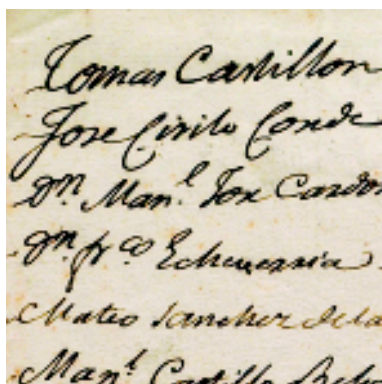 Tomas Castillon
Jose Cirilo Conde
Dn Manl. Jox Cardo
Dn frco Echeverria
Mateo Sanchez dela
Manl. Castillo